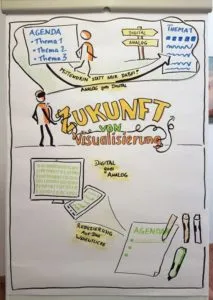 AGENDA
• Thema 1
• Thema 2
• Thema 3
DIGITAL
ANALOG
THEMA 1
MITTENDRIN STATT NUR DABEI?
ANALOG GOES DIGITAL
ZUKUNFT
VON
VISUALISIERUNG
DIGITAL
GOES
ANALOG
REDUZIERUNG
AUF DAS
WESENTLICHE
AGENDA